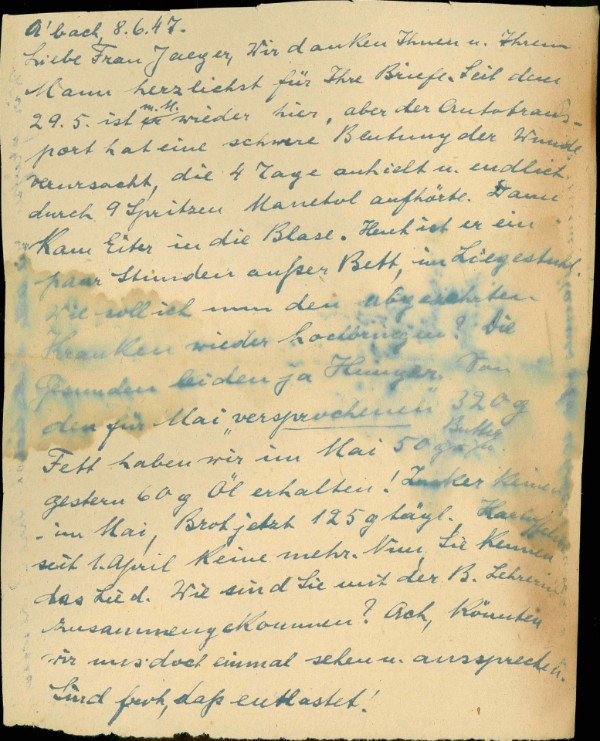 A'bach, 8.6.47.
Liebe Frau Jaeger, Wir danken Ihnen u. Ihrem
Mann herzlichst für Ihre Briefe. Seit dem
29.5. ist m. M. wieder hier, aber der Autotrans-
port hat eine schwere Blutung der Wunde
verursacht, die 4 Tage anhielt u. endlich
durch 9 Spritzen Manetol aufhörte. Dann
kam Eiter in die Blase. Heut ist er ein
paar Stunden außer Bett, im Liegestuhl.
Wie soll ich nun den abgezehrten
Kranken wieder hochbringen? Die
Gesunden leiden ja Hunger. Von
den für Mai „versprochenen" 320 g
Fett haben wir im Mai 50 g Butter
gestern 60 g Öl erhalten! Zucker keinen
im Mai, Brot jetzt 125 g tägl. Kartoffeln
seit 1. April keine mehr. Nun, Sie kennen
das Lied. Wie sind Sie mit der B. Lehrerin
zusammengekommen? Ach, könnten
wir uns doch einmal sehen u. aussprechen.
Sind froh, daß entlastet!